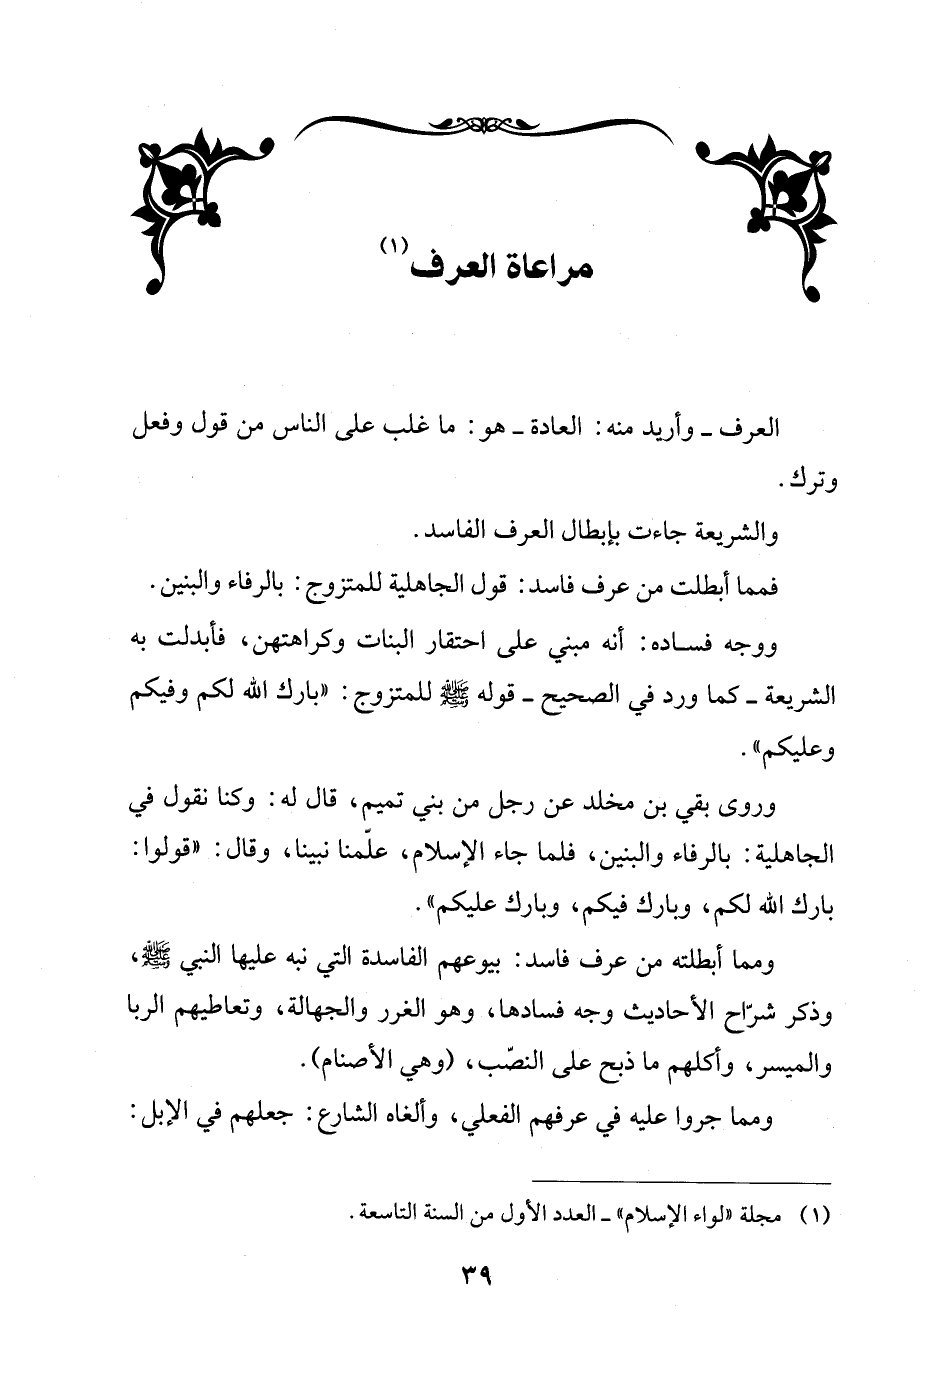 مراعاة العرف(١)
العرف ـ وأريد منه: العادة ـ هو: ما غلب على الناس من قول وفعل
وترك.
والشريعة جاءت بإبطال العرف الفاسد.
فمما أبطلت من عرف فاسد: قول الجاهلية للمتزوج: بالرفاء والبنين.
ووجه فساده: أنه مبني على احتقار البنات وكراهتهن، فأبدلت به
الشريعة ـ كما ورد في الصحيح ـ قوله ﷺ للمتزوج: «بارك الله لكم وفيكم
وعليكم».
وروى بقي بن مخلد عن رجل من بني تميم، قال له: وكنا نقول في
الجاهلية: بالرفاء والبنين، فلما جاء الإسلام، علّمنا نبينا، وقال: «قولوا:
بارك الله لكم، وبارك فيكم، وبارك عليكم».
ومما أبطلته من عرف فاسد: بيوعهم الفاسدة التي نبه عليها النبي ﷺ،
وذكر شرّاح الأحاديث وجه فسادها، وهو الغرر والجهالة، وتعاطيهم الربا
والميسر، وأكلهم ما ذبح على النصّب، (وهي الأصنام).
ومما جروا عليه في عرفهم الفعلي، وألغاه الشارع: جعلهم في الإبل:
(١) مجلة «لواء الإسلام» ـ العدد الأول من السنة التاسعة.
٣٩